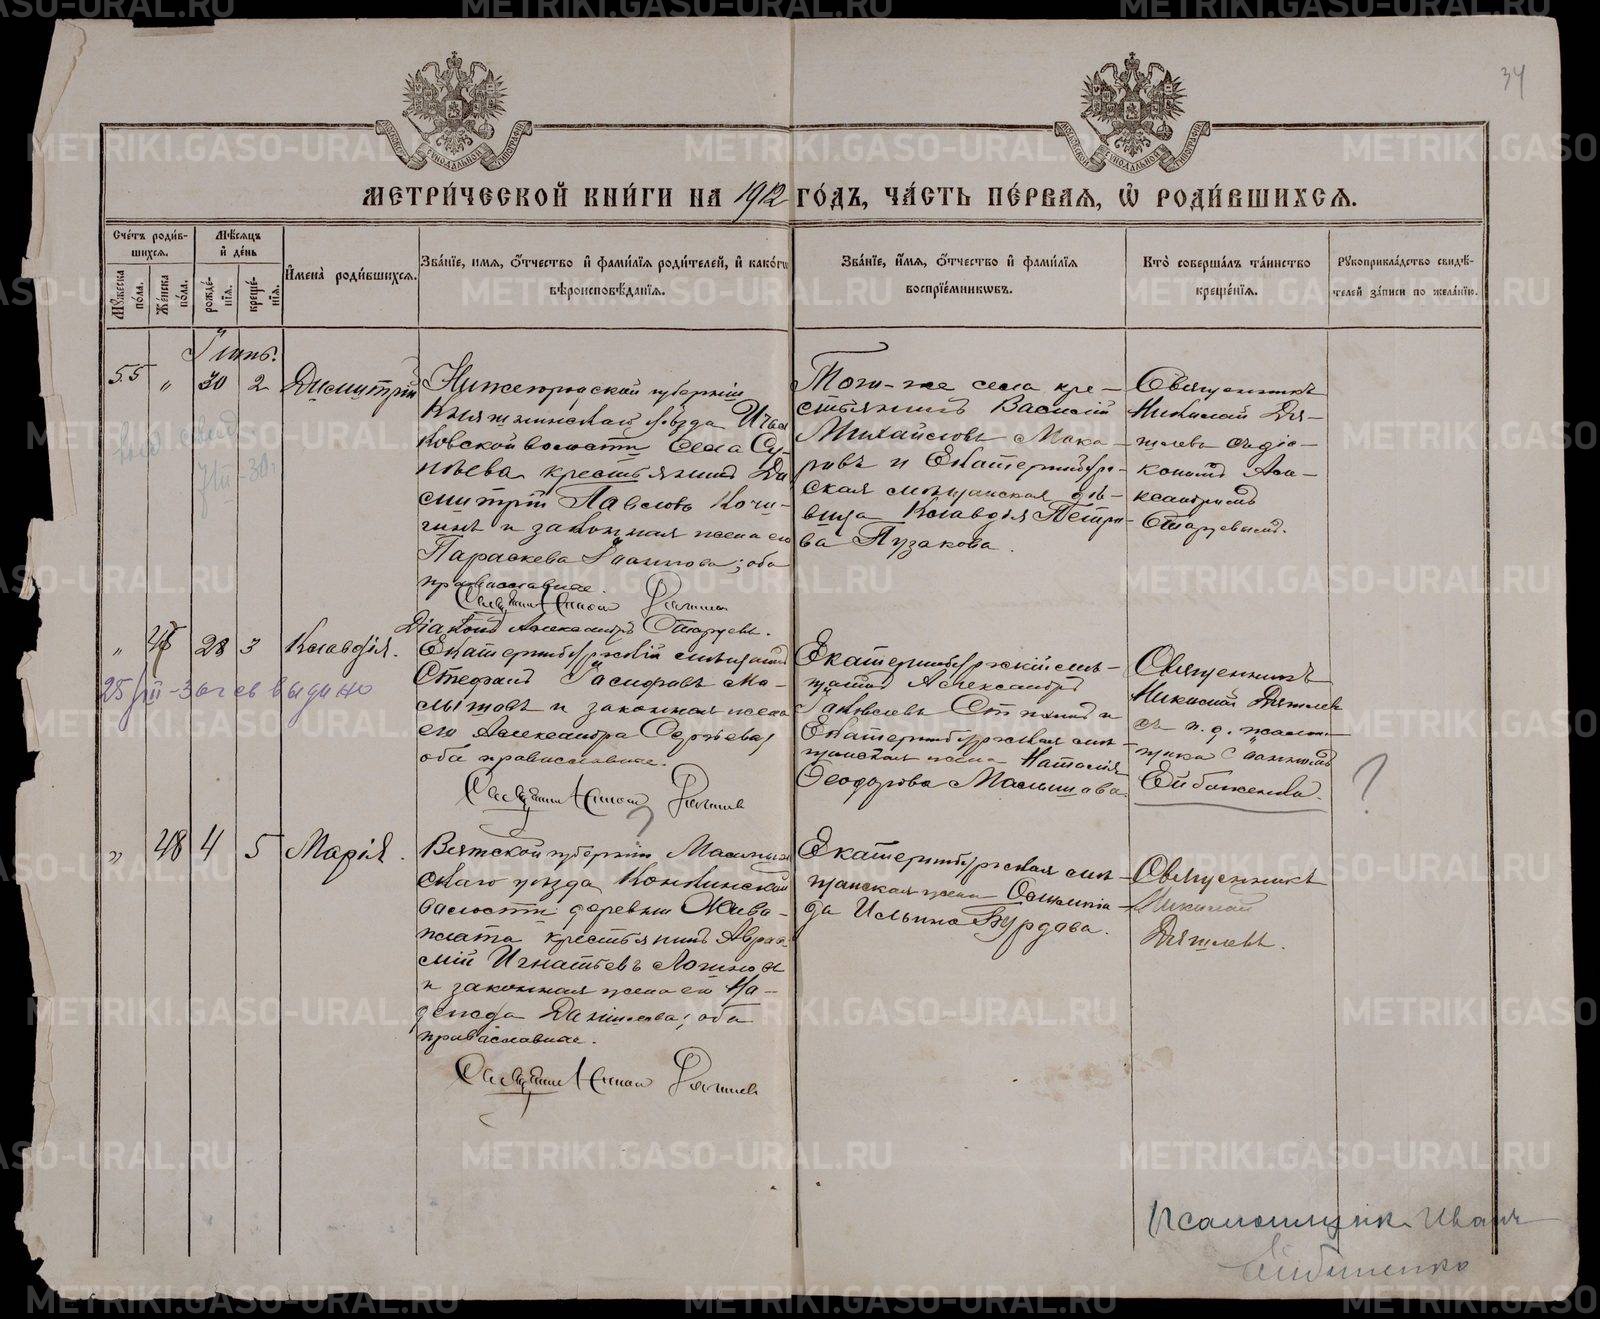 34
МОСКОВСКОЙ СИНОДАЛЬНОЙ ТИПОГРАФІИ
МОСКОВСКОЙ СИНОДАЛЬНОЙ ТИПОГРАФІИ
МЕТРИ́ЧЕСКОЙ КНИ́ГИ НА 1912 ГО́ДЪ, ЧА́СТЬ ПЕ́РВАЯ, Ѡ РОДИ́ВШИХСЯ.
Сче́тъ роди́в-
шихся.
Му́жеска
по́ла.
Же́нска
по́ла.
Мѣ́сяцъ
и де́нь
рожде́-
нїя.
креще́-
нїя.
И҆мена̀ роди́вшихся.
Зва́нїе, имя, о҆́тчество и҆ фами́лїя роди́телей, и҆ како́гѡ
вѣроисповѣ́данїя.
Зва́нїе, и҆́мя, о҆́тчество и҆ фами́лїя
воспрїе́мникѡвъ.
Кто̀ соверша́лъ та́инство
креще́нїя.
Рꙋкоприкла́дство свидѣ́-
телей за́писи по жела́нїю.
55 " 30 2 Димитрій
Нижегородской губерніи
Княгининскаго уѣзда
ковской волости села Су-
нѣева крестьянинъ Ди-
митрій Павловъ Кочи-
гинъ и законная жена его
Параскева ; оба
православные.
Священникъ Николай Дягилевъ
Діаконъ Александръ Старцевъ.
Того-же села кре-
стьянинъ Василій
Михайловъ Мака-
ровъ и Екатеринбург-
ская мѣщанская дѣ-
вица Клавдія Петро-
ва Пузакова.
Священникъ
Николай Дя-
гилевъ съ діа-
кономъ Але-
ксандромъ
Старцевымъ.
" 47 28 3 Клавдія.
25/VII-30 г св выдано
Екатеринбургскій мѣщанинъ
Стефанъ Іасифовъ Ма-
лышовъ и законная жена
его Александра Сергѣева;
оба православные.
Священникъ Николай Дягилевъ
Екатеринбургскій мѣ-
щанинъ Александръ
Яковлевъ и
Екатеринбургская мѣ-
щанская жена Наталія
Ѳеодорова Малышова.
Священникъ
Николай Дягилев
съ и. д. псалом-
щика Іоанномъ
Ейбоженко.
?
" 48 4 5 Марія.
Вятской губерніи Малмыж-
скаго уѣзда
волости деревни Жива-
крестьянинъ Авраа-
мій Игнатьевъ Логиновъ
и законная жена его На-
дежда Данилова; оба
православные.
Священникъ Николай Дягилевъ
Екатеринбургская мѣ-
щанская жена Олимпіа-
да Ильина Бурдова.
Священникъ
Николай
Дягилевъ.
Псаломщикъ Иванъ
Ейбоженко
METRIKI.GASO-URAL.RU